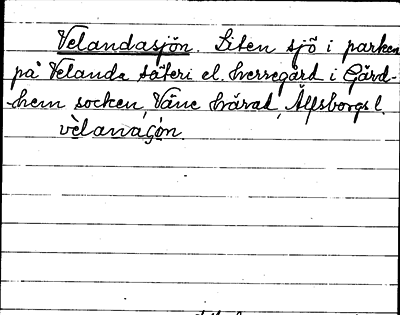 Velandasjön. Liten sjö i parken
på Velanda säteri el. herregård i Gärd-
hem socken, Väne härad, Älfsborgs l.
vèlanaʃón.